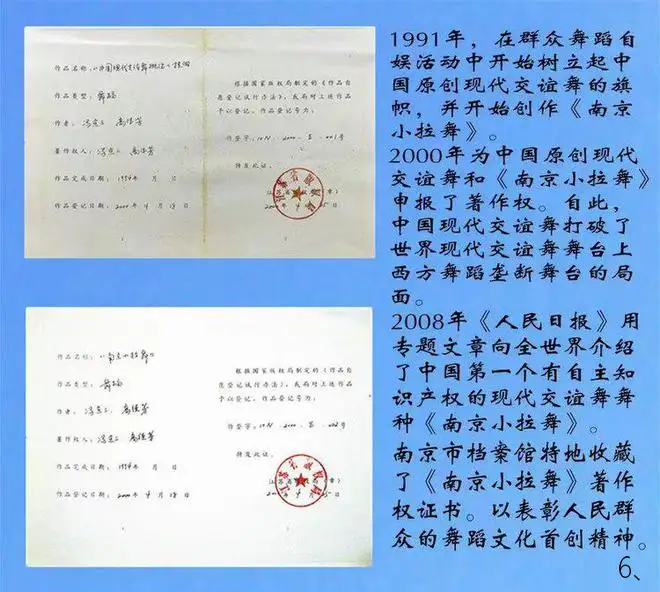 作品名称：《中国现代交谊舞概论》技困
作品类型：舞蹈
作者：
著作权人：
作品完成日期：1994年 月 日
作品登记日期：2000年 4月 18日
根据国家版权局制定的《作品自
愿登记试行办法》，我局对上述作品
予以登记，作品登记号为：
作登字：10-N-2000-第-001号
特发此证。
江苏省版权局（章）
作品名称：《南京小拉舞》
作品类型：舞蹈
作者：
著作权人：
作品完成日期：1994年 月 日
作品登记日期：2000年 4月 18日
根据国家版权局制定的《作品自
愿登记试行办法》，我局对上述作品
予以登记，作品登记号为：
作登字：10-N-2000-第-002号
特发此证。
江苏省版权局（章）
1991年，在群众舞蹈自
娱活动中开始树立起中
国原创现代交谊舞的旗
帜，并开始创作《南京
小拉舞》。
2000年为中国原创现代
交谊舞和《南京小拉舞》
申报了著作权。自此，
中国现代交谊舞打破了
世界现代交谊舞舞台上
西方舞蹈垄断舞台的局
面。
2008年《人民日报》用
专题文章向全世界介绍
了中国第一个有自主知
识产权的现代交谊舞舞
种《南京小拉舞》。
南京市档案馆特地收藏
了《南京小拉舞》著作
权证书。以表彰人民群
众的舞蹈文化首创精神。
6、